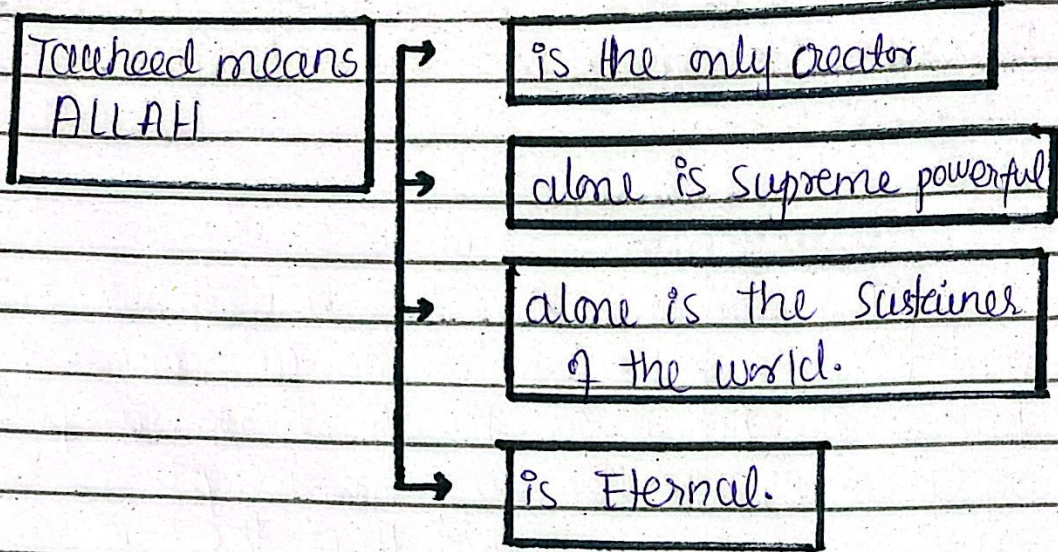 Tauheed means
ALLAH
is the only creator
alone is supreme powerful
alone is the Sustainer
of the world.
is Eternal.